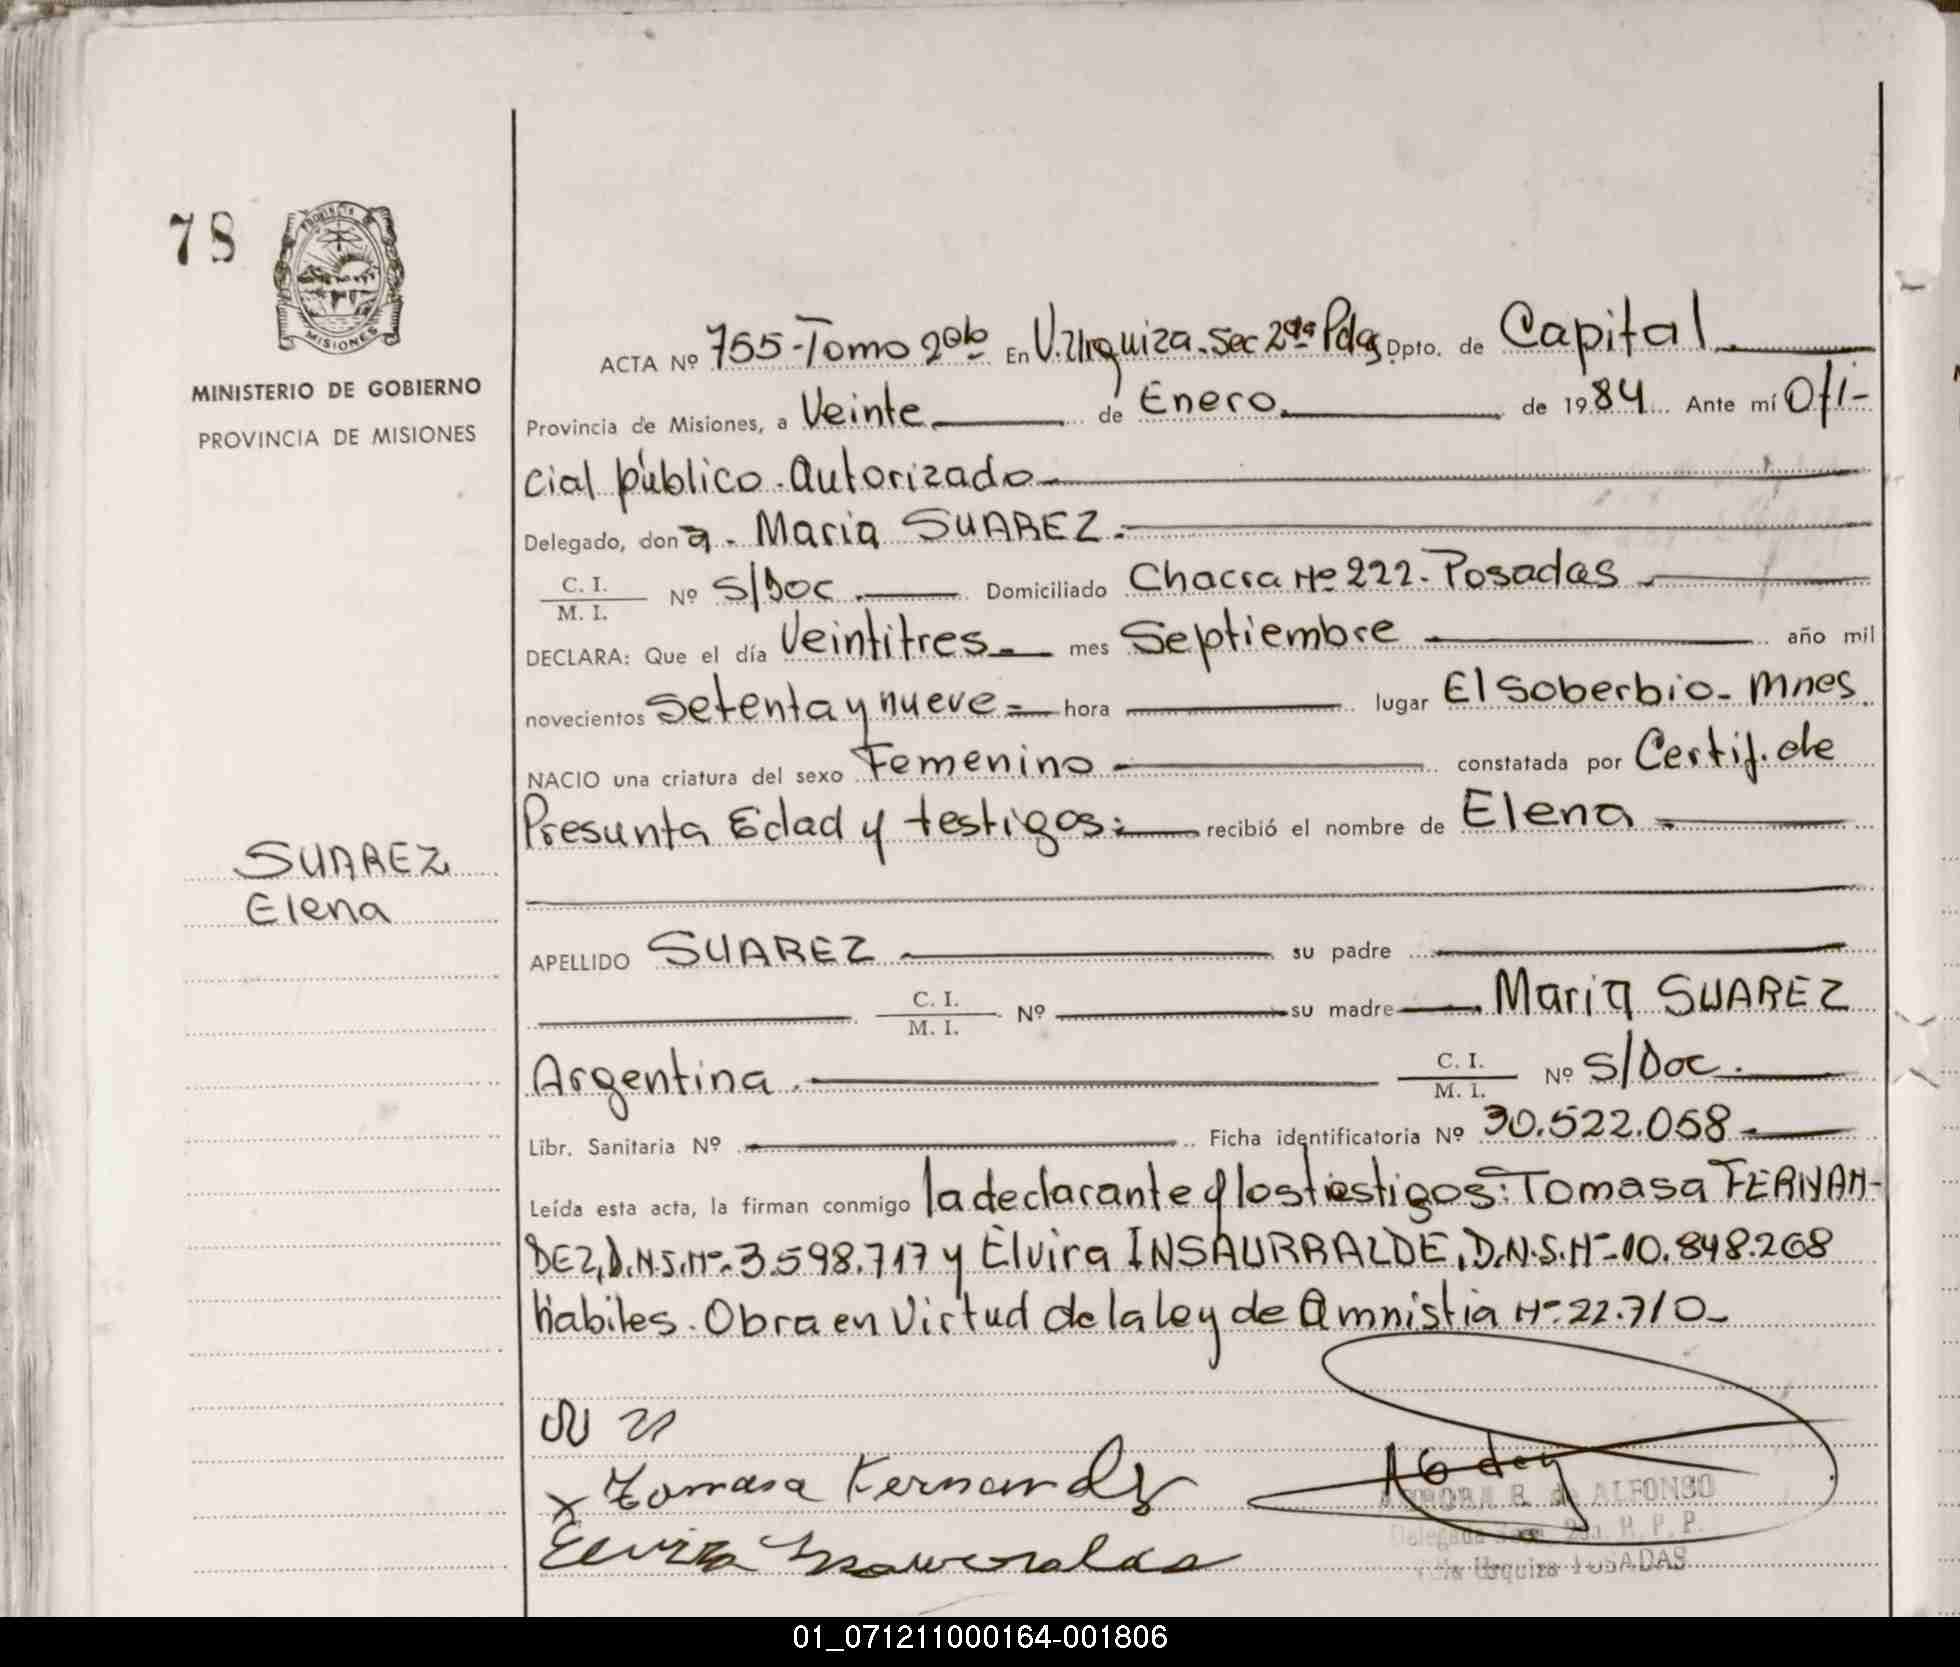 78
PROVINCIA DE
MISIONES
MINISTERIO DE GOBIERNO
PROVINCIA DE MISIONES
ACTA Nº 755-Tomo 2º En V.Urquiza-Sec 2da Pdas Dpto. de Capital
Provincia de Misiones, a Veinte de Enero de 1984 Ante mí Ofi-
cial público. Autorizado
Delegado, donª. Maria SUAREZ.
C. I.
M. I. Nº S/Doc Domiciliado Chacra Nº 222. Posadas
DECLARA: Que el día Veintitres mes Septiembre año mil
novecientos Setenta y nueve hora lugar El Soberbio-Mnes.
NACIO una criatura del sexo Femenino constatada por Certif. de
Presunta Edad y testigos: recibió el nombre de Elena
SUAREZ
Elena
APELLIDO SUAREZ su padre
C. I.
M. I. Nº su madre Maria SUAREZ
Argentina. C. I.
M. I. Nº S/Doc.
Libr. Sanitaria Nº Ficha identificatoria Nº 30.522.058
Leída esta acta, la firman conmigo la declarante y los testigos: Tomasa FERNAN-
DEZ, D.N.S.Nº-3.598.717 y Elvira INSAURRALDE, D.N.S.Nº-10.848.268
hábiles. Obra en Virtud de la ley de Amnistia Nº-22.710-
Tomasa Fernandez
Elvira Insaurralde
AURORA B. de ALFONSO
Delegada Secc. 2da. R. P. P.
Villa Urquiza POSADAS
01_071211000164-001806